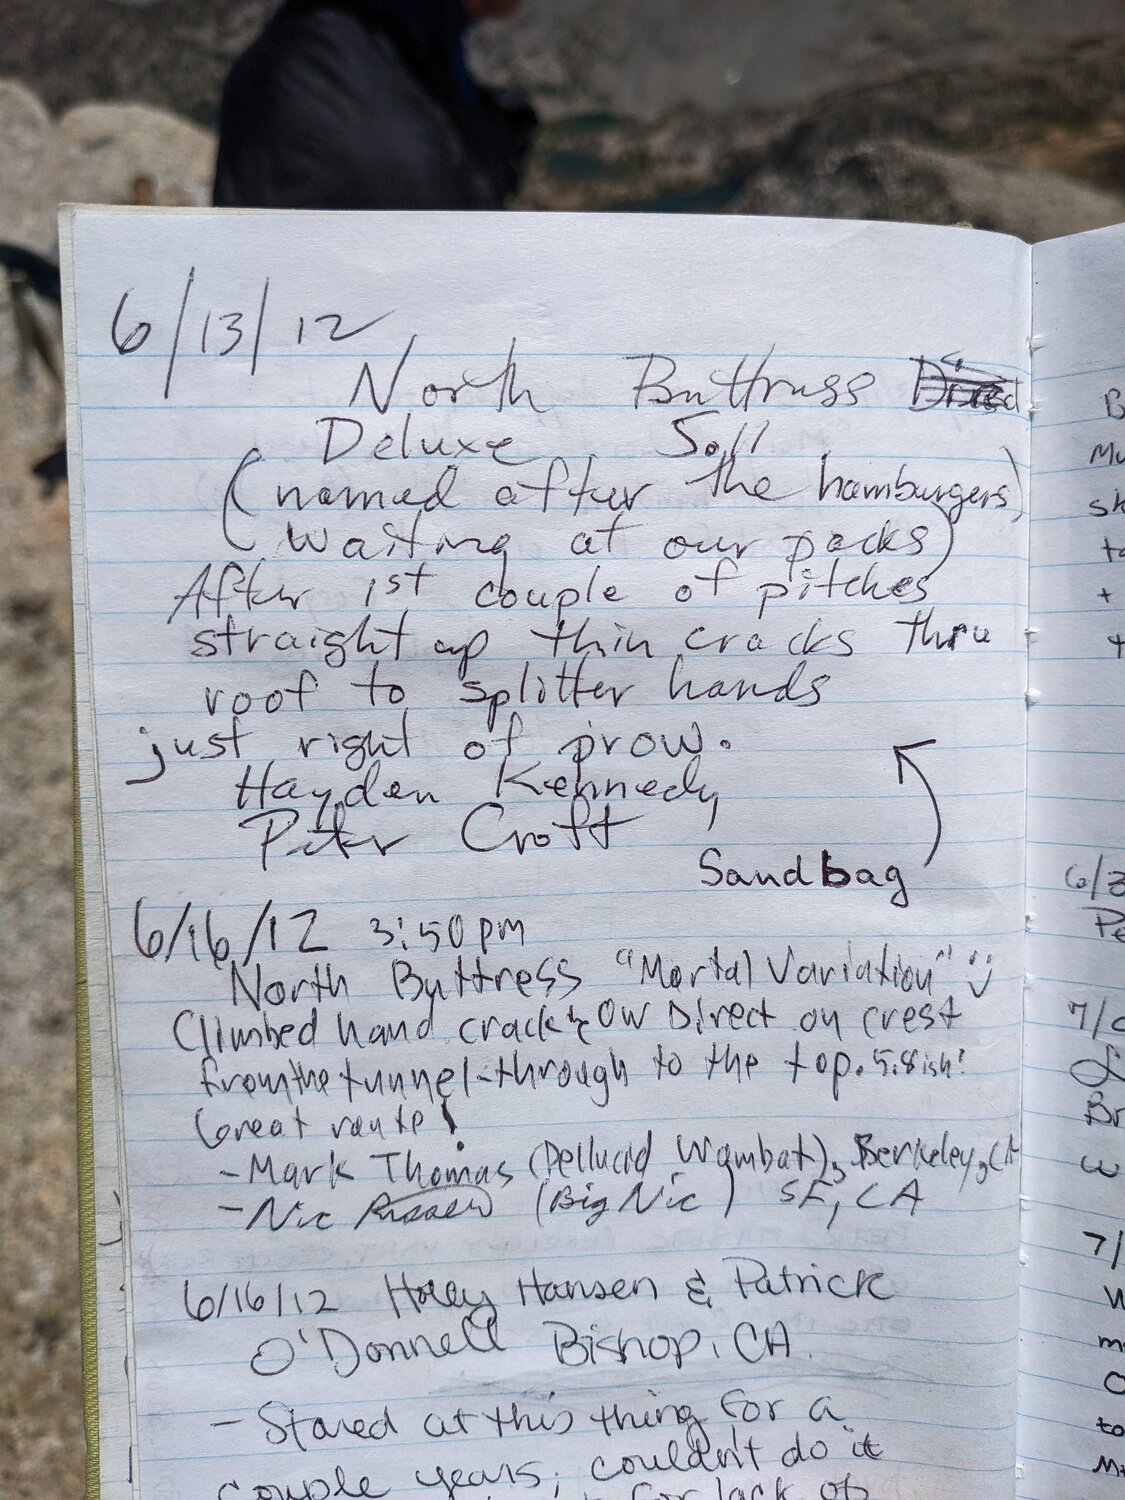 6/13/12
North Buttruss
Deluxe 5.11
(named after the hamburgers)
(waiting at our packs)
After 1st couple of pitches
straight up thin cracks thru
roof to splitter hands
just right of prow.
Hayden Kennedy
Peter Croft
Sandbag
6/16/12 3:50pm
North Buttress "Mortal Variation" :)
Climbed hand crack & OW Direct on crest
from the tunnel-through to the top. 5.8ish!
Great route!
- Mark Thomas (Pellucid Wombat), Berkeley, CA
- Nic (Big Nic) SF, CA
6/16/12 Hansen & Patrick
O'Donnell Bishop, CA.
- Stared at this thing for a
couple years, couldn't do it
for lack of
B
Mu
sk
to
+
+
6/3
Pe
7/
Br
w
7/
W
m
O
to